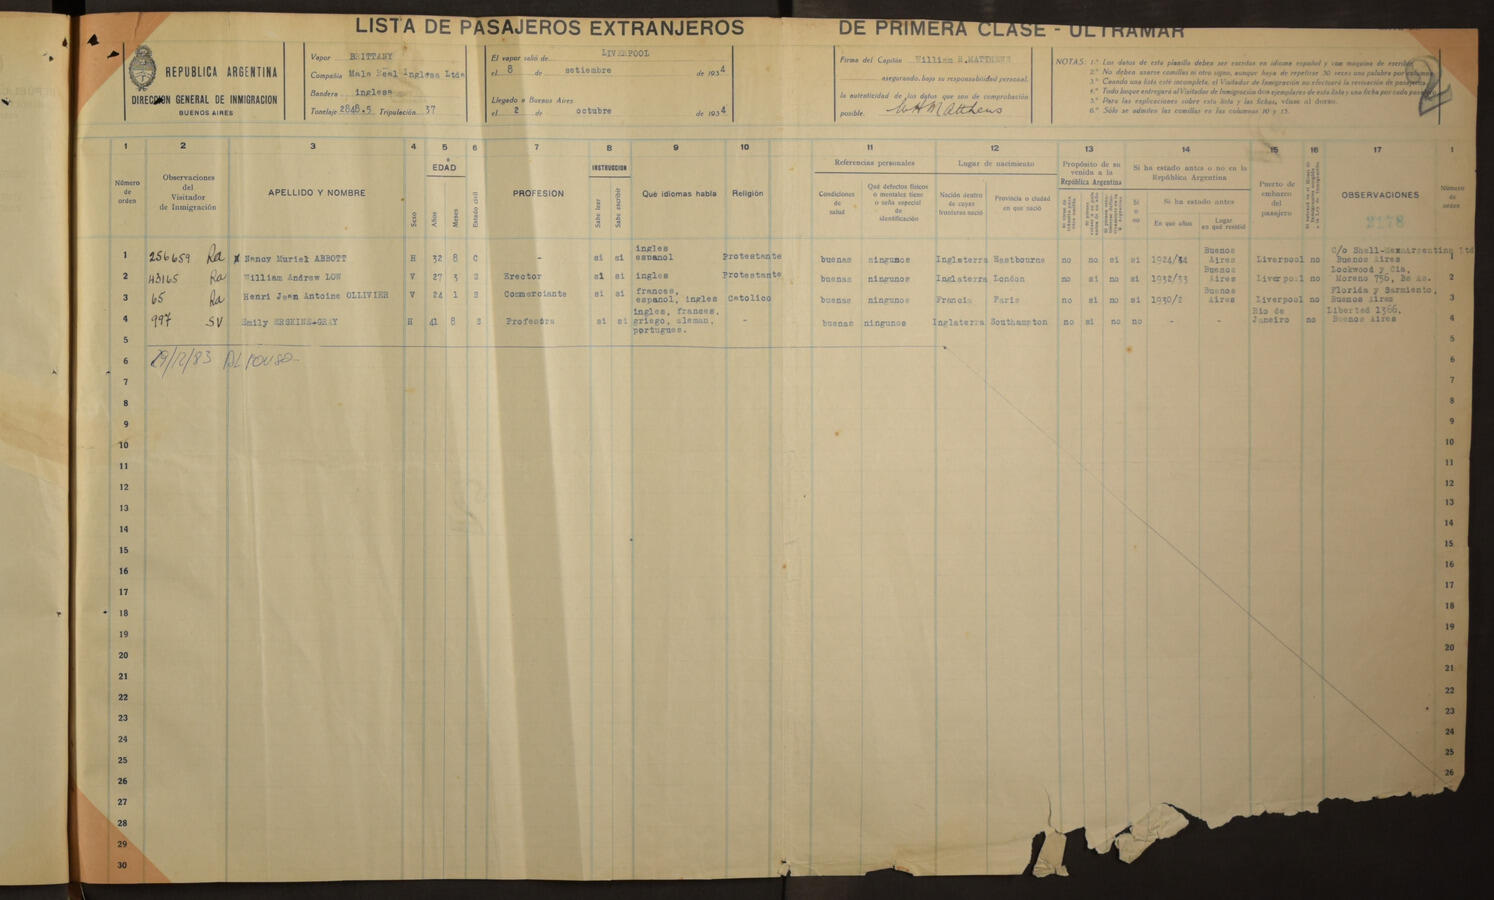 LISTA DE PASAJEROS EXTRANJEROS DE PRIMERA CLASE - ULTRAMAR
REPUBLICA ARGENTINA
DIRECCION GENERAL DE INMIGRACION
BUENOS AIRES
Vapor BRITTANY
Compañia Mala Real Inglesa Ltda
Bandera inglesa
Tonelaje 2848.5 Tripulación 37
El vapor salió de LIVERPOOL
el 8 de setiembre de 1934
Llegado a Buenos Aires
el 2 de octubre de 1934
Firma del Capitán William H. MATTHEWS
asegurando, bajo su responsabilidad personal,
la autenticidad de los datos que son de comprobación
posible. W H Matthews
NOTAS: 1.ª Los datos de esta planilla deben ser escritos en idioma español y con máquina de escribir.
2.ª No deben usarse comillas ni otro signo, aunque haya de repetirse 30 veces una palabra por columna.
3.ª Cuando una lista esté incompleta, el Visitador de Inmigración no efectuará la revisación de pasajeros.
4.ª Todo buque entregará al Visitador de Inmigración dos ejemplares de esta lista y una ficha por cada pasajero.
5.ª Para las explicaciones sobre esta lista y las fichas, véase al dorso.
6.ª Sólo se admiten las comillas en las columnas 10 y 15.
2
1 2 3 4 5 6 7 8 9 10 11 12 13 14 15 16 17 1
Número de orden
Observaciones del Visitador de Inmigración
APELLIDO Y NOMBRE
Sexo
EDAD
Años
Meses
Estado civil
PROFESION
INSTRUCCION
Sabe leer
Sabe escribir
Qué idiomas habla
Religión
Referencias personales
Condiciones de salud
Qué defectos físicos o mentales tiene o seña especial de identificación
Lugar de nacimiento
Nación dentro de cuyas fronteras nació
Provincia o ciudad en que nació
Propósito de su venida a la República Argentina
Si ha estado antes o no en la República Argentina
Si o no
Si ha estado antes
En qué años
Lugar en qué residió
Puerto de embarco del pasajero
OBSERVACIONES
2178
Número de orden
1 256659 Ra x Nancy Muriel ABBOTT H 32 8 C - si si ingles espanol Protestante buenas ningunos Inglaterra Eastbourne no no si si 1924/34 Buenos Aires Liverpool no C/o Shell-Mexargentina Ltd Buenos Aires 1
2 43165 Ra William Andrew LOW V 27 3 S Erector si si ingles Protestante buenas ningunos Inglaterra London no si no si 1932/33 Buenos Aires Liverpool no Lockwood y Cia, Moreno 756, Bs As. 2
3 65 Ra Henri Jean Antoine OLLIVIER V 24 1 S Commerciante si si frances, espanol, ingles Catolico buenas ningunos Francia Paris no si no si 1930/2 Buenos Aires Liverpool no Florida y Sarmiento, Buenos Aires 3
4 997 SV Emily ERSKINE-GRAY H 41 8 S Profesora si si ingles, frances, griego, aleman, portugues. - buenas ningunos Inglaterra Southampton no si no no - - Rio de Janeiro no Libertad 1366, Buenos Aires 4
5 5
6 29/12/83 ALFONSO 6
7 7
8 8
9 9
10 10
11 11
12 12
13 13
14 14
15 15
16 16
17 17
18 18
19 19
20 20
21 21
22 22
23 23
24 24
25 25
26 26
27
28
29
30